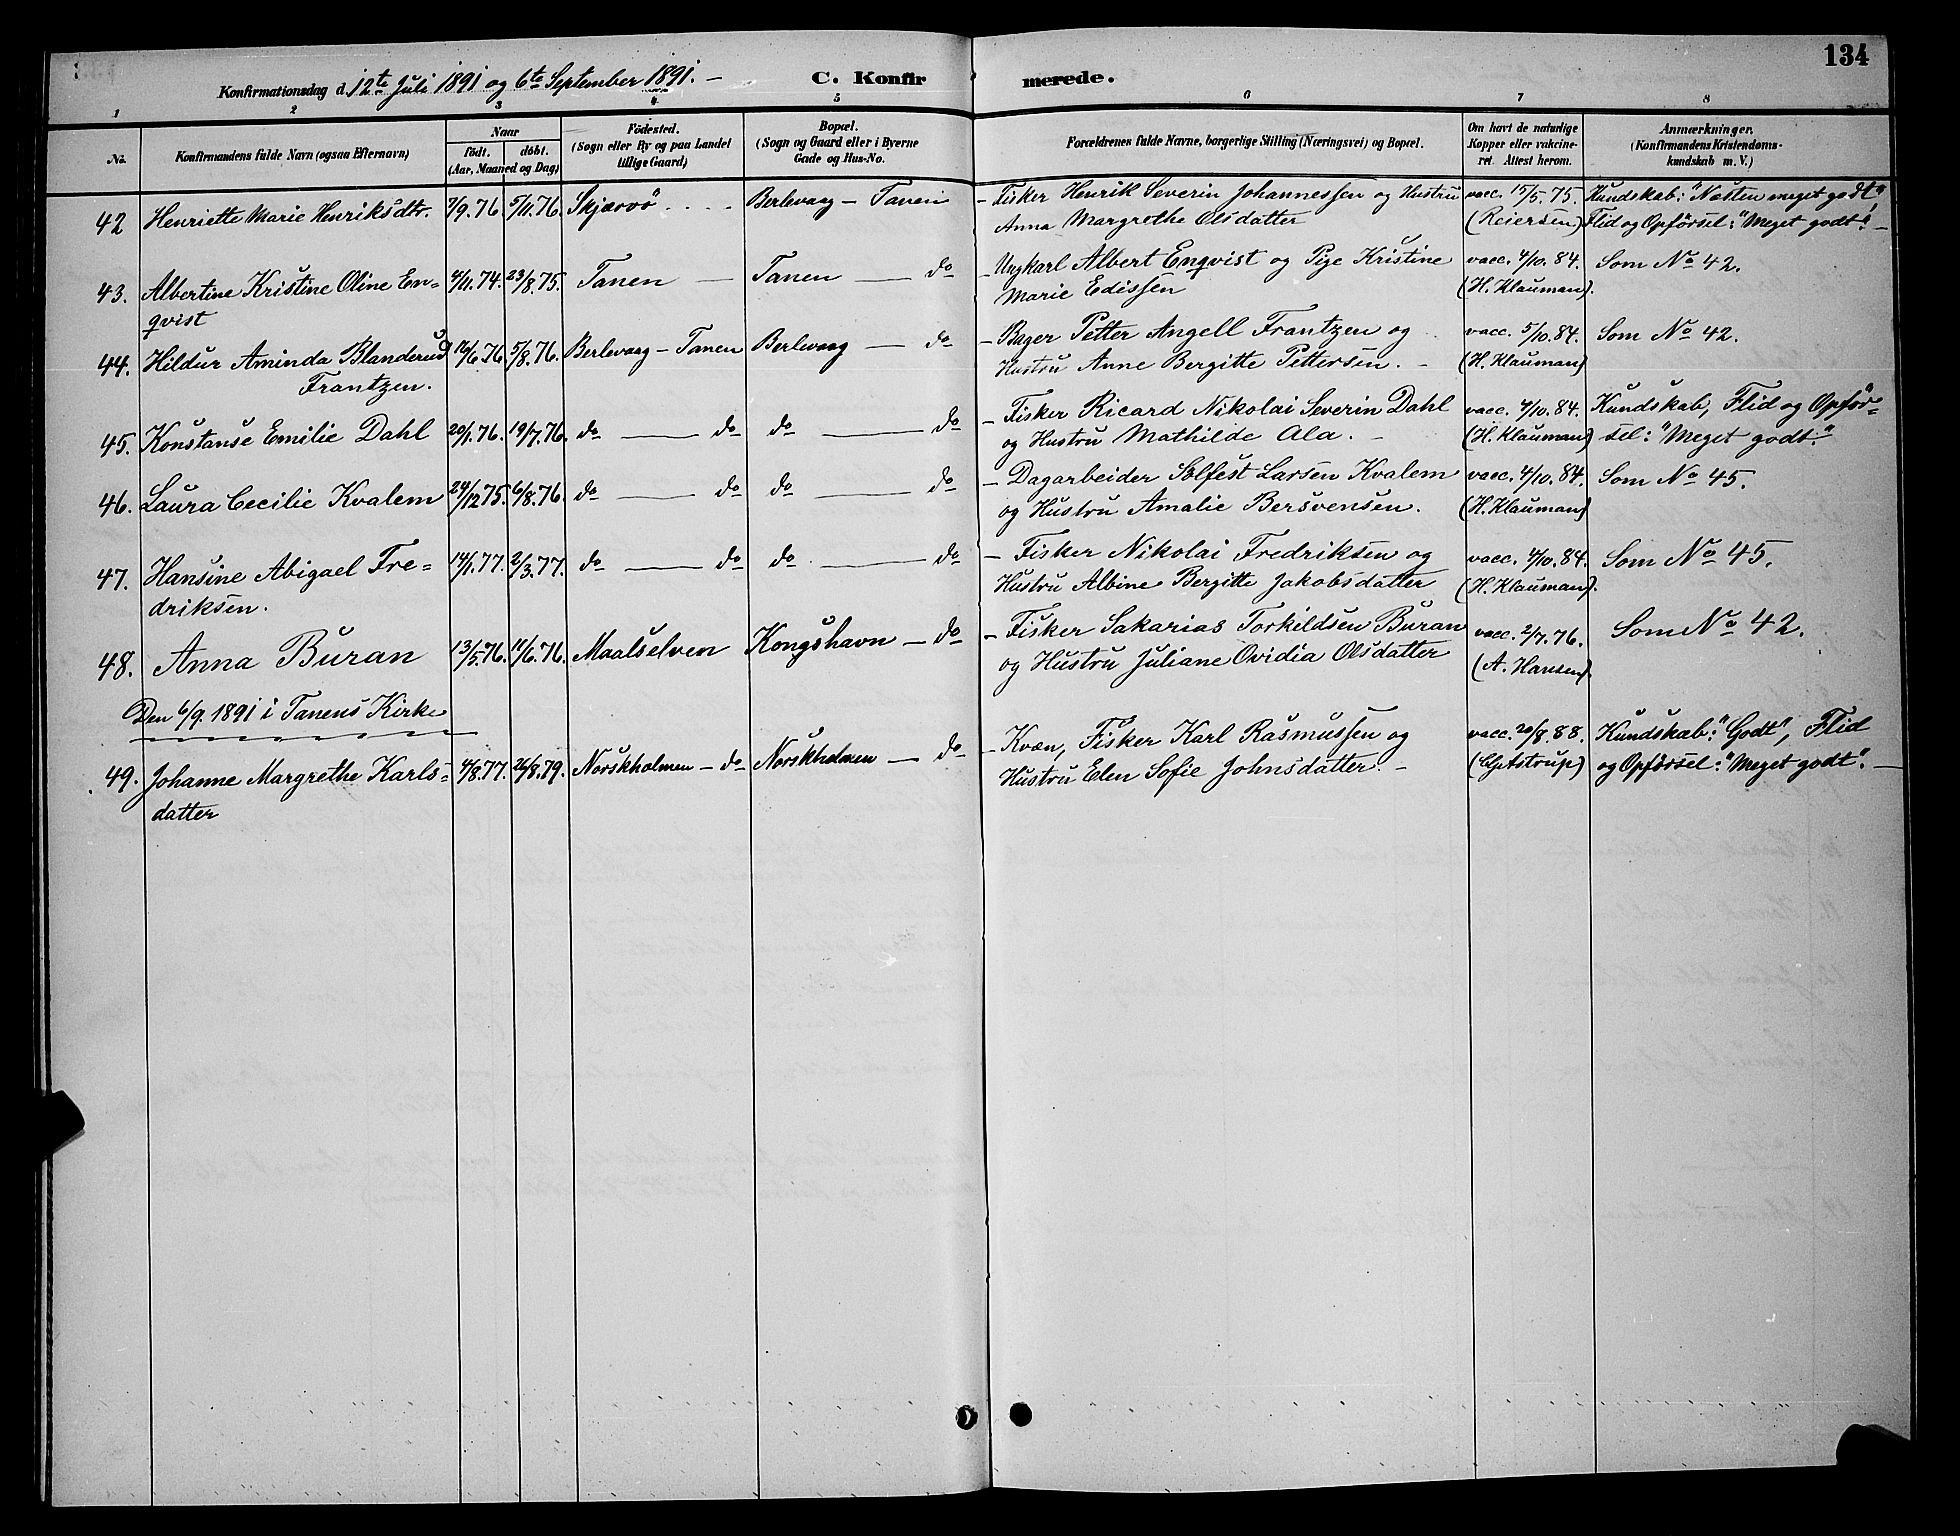 134
Konfirmationsdag d. 12te Juli 1891 og 6te September 1891. – C. Konfirmerede.
1 2 3 4 5 6 7 8
No. Konfirmandens fulde Navn (ogsaa Efternavn) Naar födt. döbt. (Aar, Maaned og Dag) Födested. (Sogn eller By og paa Landet tillige Gaard) Bopæl. (Sogn og Gaard eller i Byerne Gade og Hus-No. Forældrenes fulde Navne, borgerlige Stilling (Næringsvei) og Bopæl. Om havt de naturlige Kopper eller vakcineret. Attest herom. Anmærkninger. (Konfirmandens Kristendomskundskab m. V.)
42 Henriette Marie Henriksdtr. 7/9.76 5/11.76. Skjærvö . . . . Berlevaag – Tanen – Fisker Henrik Severin Johannessen og Hustru vacc. 15/5.75. Kundskab: "Næsten meget godt"
Anna Margrethe Olsdatter (Reiersen) Flid og Opförsel: "Meget godt". –
43. Albertine Kristine Oline En= 4/11.74. 23/8.75. Tanen — Tanen — do – Ungkarl Albert Enqvist og Pige Kristine vacc. 4/10.84. Som No 42.
qvist Marie Edissen (H. Klauman).
44. Hildur Aminda Blanderud 16/6.76 5/8.76. Berlevaag – Tanen Berlevaag — do – Bager Petter Angell Frantzen og vacc. 5/10.84. Som No 42.
Frantzen. Hustru Anne Bergitte Pettersen. – (H. Klauman)
45. Konstanse Emilie Dahl 20/1.76. 19/7.76. do — do do — do – Fisker Ricard Nikolai Severin Dahl vacc. 4/10.84. Kundskab, Flid og Opför=
og Hustru Mathilde Ala. – (H. Klauman) sel: "Meget godt."
46. Laura Cecilie Kvalem 24/12.75. 6/8.76. do — do do — do – Dagarbeider Solfest Larsen Kvalem vacc. 4/10.84. Som No 45.
og Hustru Amalie Bersvensen. (H. Klauman)
47. Hansine Abigael Fre= 14/1.77. 2/3.77. do — do do — do – Fisker Nikolai Fredriksen og vacc. 4/10.84. Som No 45.
driksen. Hustru Albine Bergitte Jakobsdatter (H. Klauman).
48. Anna Buran 13/5.76. 11/6.76. Maalselven Kongshavn – do – Fisker Sakarias Torkildsen Buran vacc. 2/7.76. Som No 42.
og Hustru Juliane Ovidia Olsdatter (A. Hansen).
Den 6/9.1891 i Tanens Kirke
49. Johanne Margrethe Karls= 4/8.77. 26/8.79. Norskholmen – do Norskholmen — do – Kvæn, Fisker Karl Rasmussen og vacc. 20/8.88. Kundskab: "Godt", Flid
datter Hustru Elen Sofie Johnsdatter. – og Opförsel: "Meget godt". –